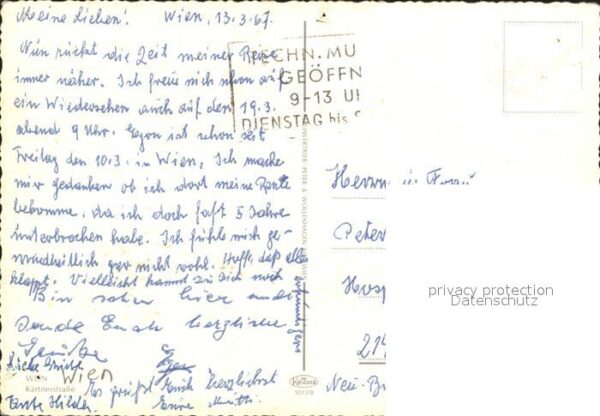 Meine Lieben! Wien, 13.3.67.
Nun rückt die Zeit meiner Reise
immer näher. Ich freue mich schon auf
ein Wiedersehen auch auf den 19.3.
abend 9 Uhr. Egon ist schon seit
Freitag den 10.3. in Wien, Ich mache
mir gedanken ob ich dort meine Rente
bekomme, da ich doch fast 5 Jahre
unterbrochen habe. Ich fühle mich ge-
sundheitlich gar nicht wohl. Hoffe, daß alles
klappt. Vielleicht kommt
Bin schon hier und
sende Euch herzliche
Grüße
Liebe Grüße Egon
Es grüßt Euch herzlichst
Tante Hilde Eure Mutti
WIEN
Kärntnerstraße
Wien
TECHN. MU
GEÖFFN
9-13 U
DIENSTAG bis
Herrn u Frau
Peter
Hosp
Neu-B
privacy protection
Datenschutz